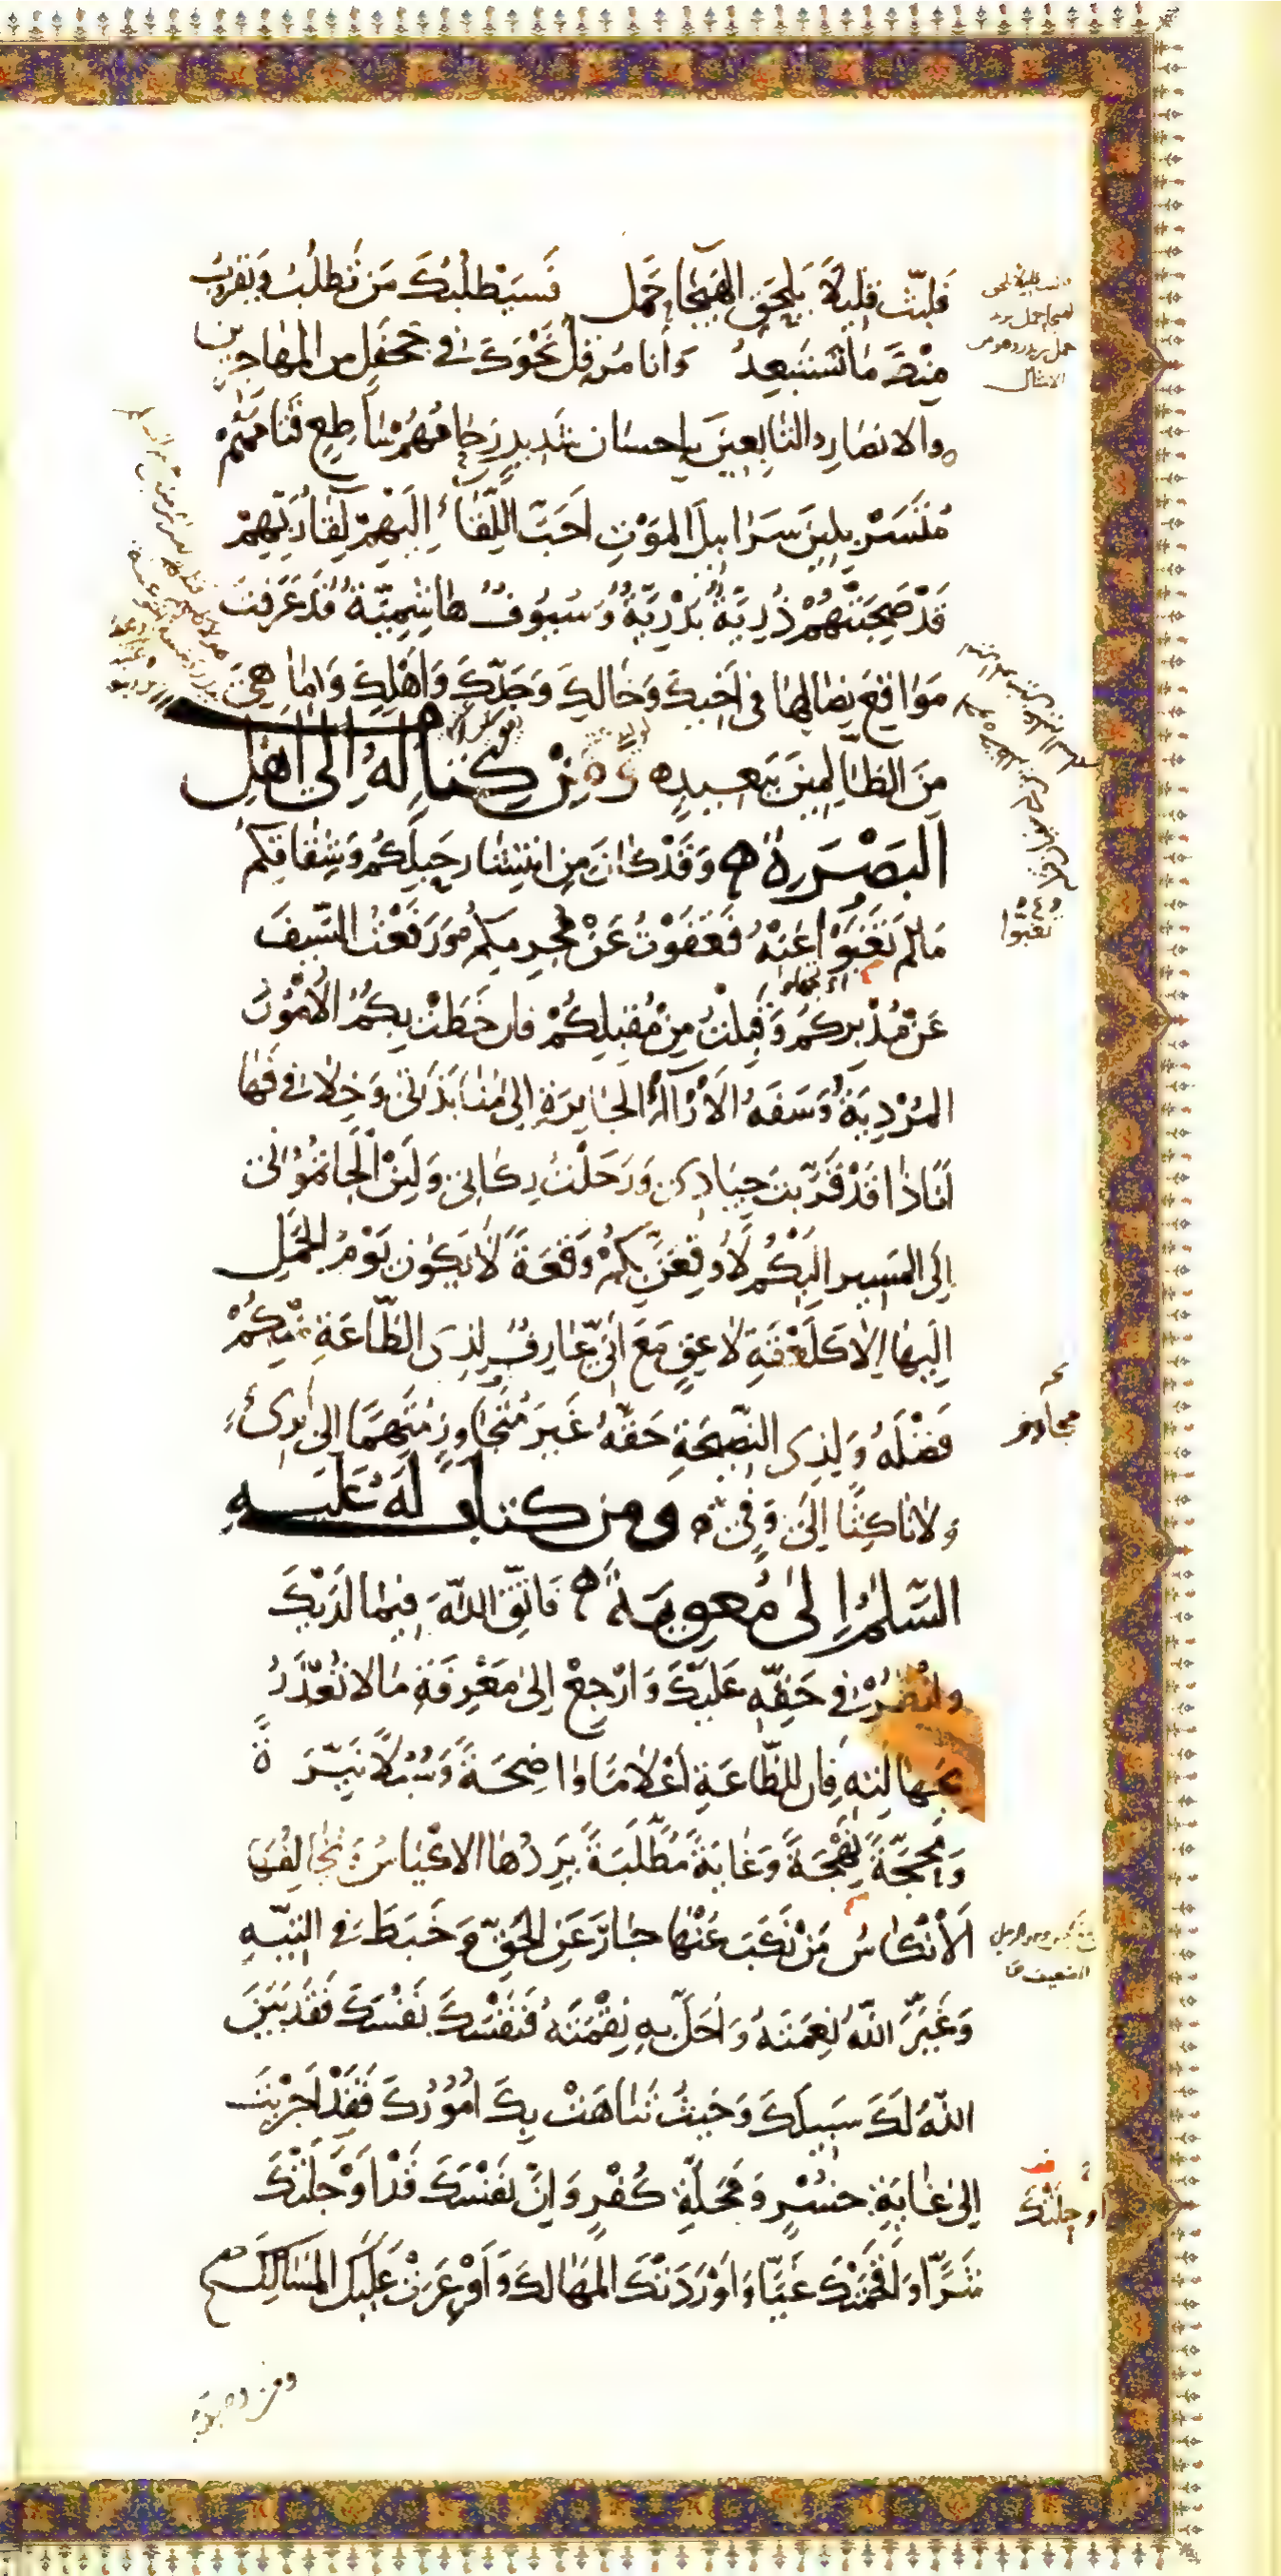 فَلَبِّثْ قَلِيلًا يَلْحَقِ الْهَيْجَاءَ حَمَل فَسَيَطْلُبُكَ مَن تَطْلُبُ وَيَقْرُبُ
مِنْكَ مَا تَسْتَبْعِدُ وَأنا مُرْقِلٌ نَحْوَكَ في جَحْفَلٍ من المهاجرين
والانصار والتابعين بإحسان شديدٍ زحامُهُمْ سَاطِعٍ قَتَامُهُمْ
مُتَسَرْبِلِينَ سَرَابِيلَ المَوْتِ اَحَبُّ اللِّقَاءِ إِلَيْهِمْ لِقَاءُ رَبِّهِمْ
قَدْ صَحِبَتْهُمْ ذُرِّيَّةٌ بَدْرِيَّةٌ وَسُيُوفٌ هاشِمِيَّةٌ قَدْ عَرَفْتَ
مَوَاقِعَ نِصَالِهَا في اَخِيكَ وَخَالِكَ وَجَدِّكَ وَاَهْلِكَ وَمَا هِيَ
مِنَ الظَّالِمِينَ بِبَعِيدٍ ه وَمِنْ كِتَابٍ لَهُ إِلَى اَهْلِ
البَصْرَةِ ه وَقَدْ كَانَ مِنِ انْتِشَارِ حَبْلِكُمْ وَشِقَاقِكُمْ
مَالَمْ تَغْبَوْا عَنْهُ فَعَفَوْتُ عَنْ مُجْرِمِكُمْ وَرَفَعْتُ السَّيْفَ
عَنْ مُدْبِرِكُمْ وَقَبِلْتُ مِنْ مُقْبِلِكُمْ فإن خَطَتْ بِكُمُ الاُمُورُ
المُرْدِيَةُ وَسَفَهُ الاَرْآءِ الجَايِرَةِ إلى مُنَابَذَتِي وَخِلافي فَهَا
اَنَاذَا قَدْ قَرَّبْتُ جِيَادِي وَرَحَلْتُ رِكَابِي وَلَئِنْ اَلْجَاتُمُوني
إِلَى المَسِيرِ إلَيْكُمْ لَاُوقِعَنَّ بِكُمْ وَقْعَةً لَا يَكُونُ يَوْمُ الجَمَلِ
إِلَيْهَا إِلاكَلَعْقَةِ لاعِقٍ مَعَ اَنِّي عَارِفٌ لِذِي الطَّاعَةِ مِنْكُمْ
فَضْلَهُ وَلِذِي النَّصِيحَةِ حَقَّهُ غَيْرَ مُتَجَاوِزٍ مُتَّهَمًا الى بَرِيءٍ
وَلانَاكِثًا إِلَى وَفِيٍّ ه ومن كتاب لَهُ عَلَيهِ
السَّلمُ إِلى مُعوِيَةَ ه فَاتَّقِ اللّهَ فِيمَا لَدَيْكَ
وانْظُرْ في حَقِّهِ عَلَيْكَ وَارْجِعْ إلى مَعْرِفَةِ مَا لا تُعْذَرُ
بِجَهَالَتِهِ فإن للطَّاعَةِ اَعْلامًا واضِحَةً وَسُبُلًا نَيِّرَةً
وَمَحَجَّةً نَهْجَةً وَغَايَةً مُطَّلَبَةً يَرِدُهَا الاكْيَاسُ وَيُخَالِفُهَا
اَلاَنْكَاسُ مَنْ نَكَبَ عَنْهَا جَارَ عَنِ الحَقِّ وَخَبَطَ في التِّيهِ
وَغَيَّرَ اللّهُ نِعْمَتَهُ وَاَحَلَّ بِهِ نِقْمَتَهُ فَنَفْسَكَ نَفْسَكَ فَقَدْ بَيَّنَ
اللّهُ لَكَ سَبِيلَكَ وَحَيْثُ تَنَاهَتْ بِكَ اُمُورُكَ فَقَدْ اَجْرَيْتَ
إِلَى غَايَةِ خُسْرٍ وَمَحَلَّةِ كُفْرٍ وَإِنَّ نَفْسَكَ قَدْ اَوْجَلَتْكَ
شَرًّا وَاَقْحَمَتْكَ غَيًّا وَاَوْرَدَتْكَ المَهَالِكَ وَاَوْعَرَتْ عَلَيْكَ المَسَالِكَ
الامثال
تَغْبَوْا
متجاوز
اوحلَتْكَ
ومن وصية